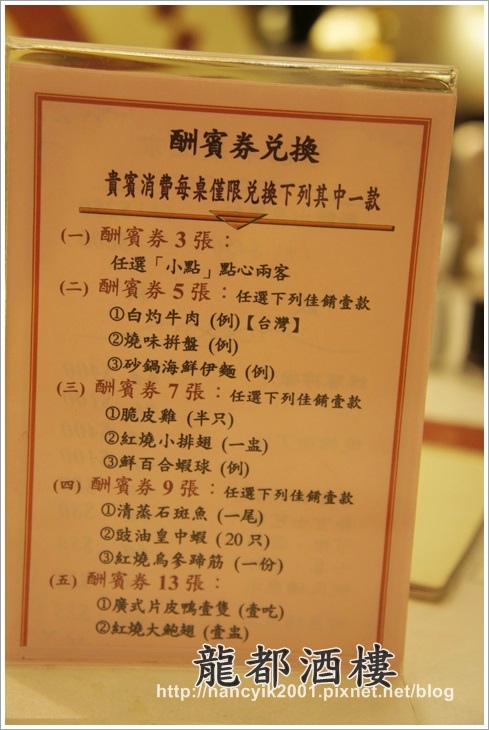 酬賓券兌換
貴賓消費每桌僅限兌換下列其中一款
(一) 酬賓券 3 張：
任選「小點」點心兩客
(二) 酬賓券 5 張：任選下列佳餚壹款
①白灼牛肉 (例)【台灣】
②燒味拼盤 (例)
③砂鍋海鮮伊麵 (例)
(三) 酬賓券 7 張：任選下列佳餚壹款
①脆皮雞 (半只)
②紅燒小排翅 (一盅)
③鮮百合蝦球 (例)
(四) 酬賓券 9 張：任選下列佳餚壹款
①清蒸石斑魚 (一尾)
②豉油皇中蝦 (20 只)
③紅燒烏參蹄筋 (一份)
(五) 酬賓券 13 張：
①廣式片皮鴨壹隻 (壹吃)
②紅燒大鮑翅 (壹盅)
龍都酒樓
http://nancyik2001.pixnet.net/blog